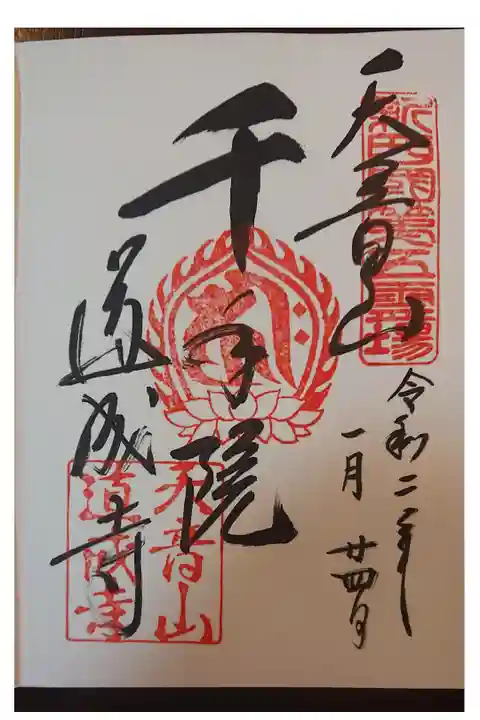 新西國第五霊場
天音山
令和二年
一月廿四日
千手院
道成寺
天音山
道成寺